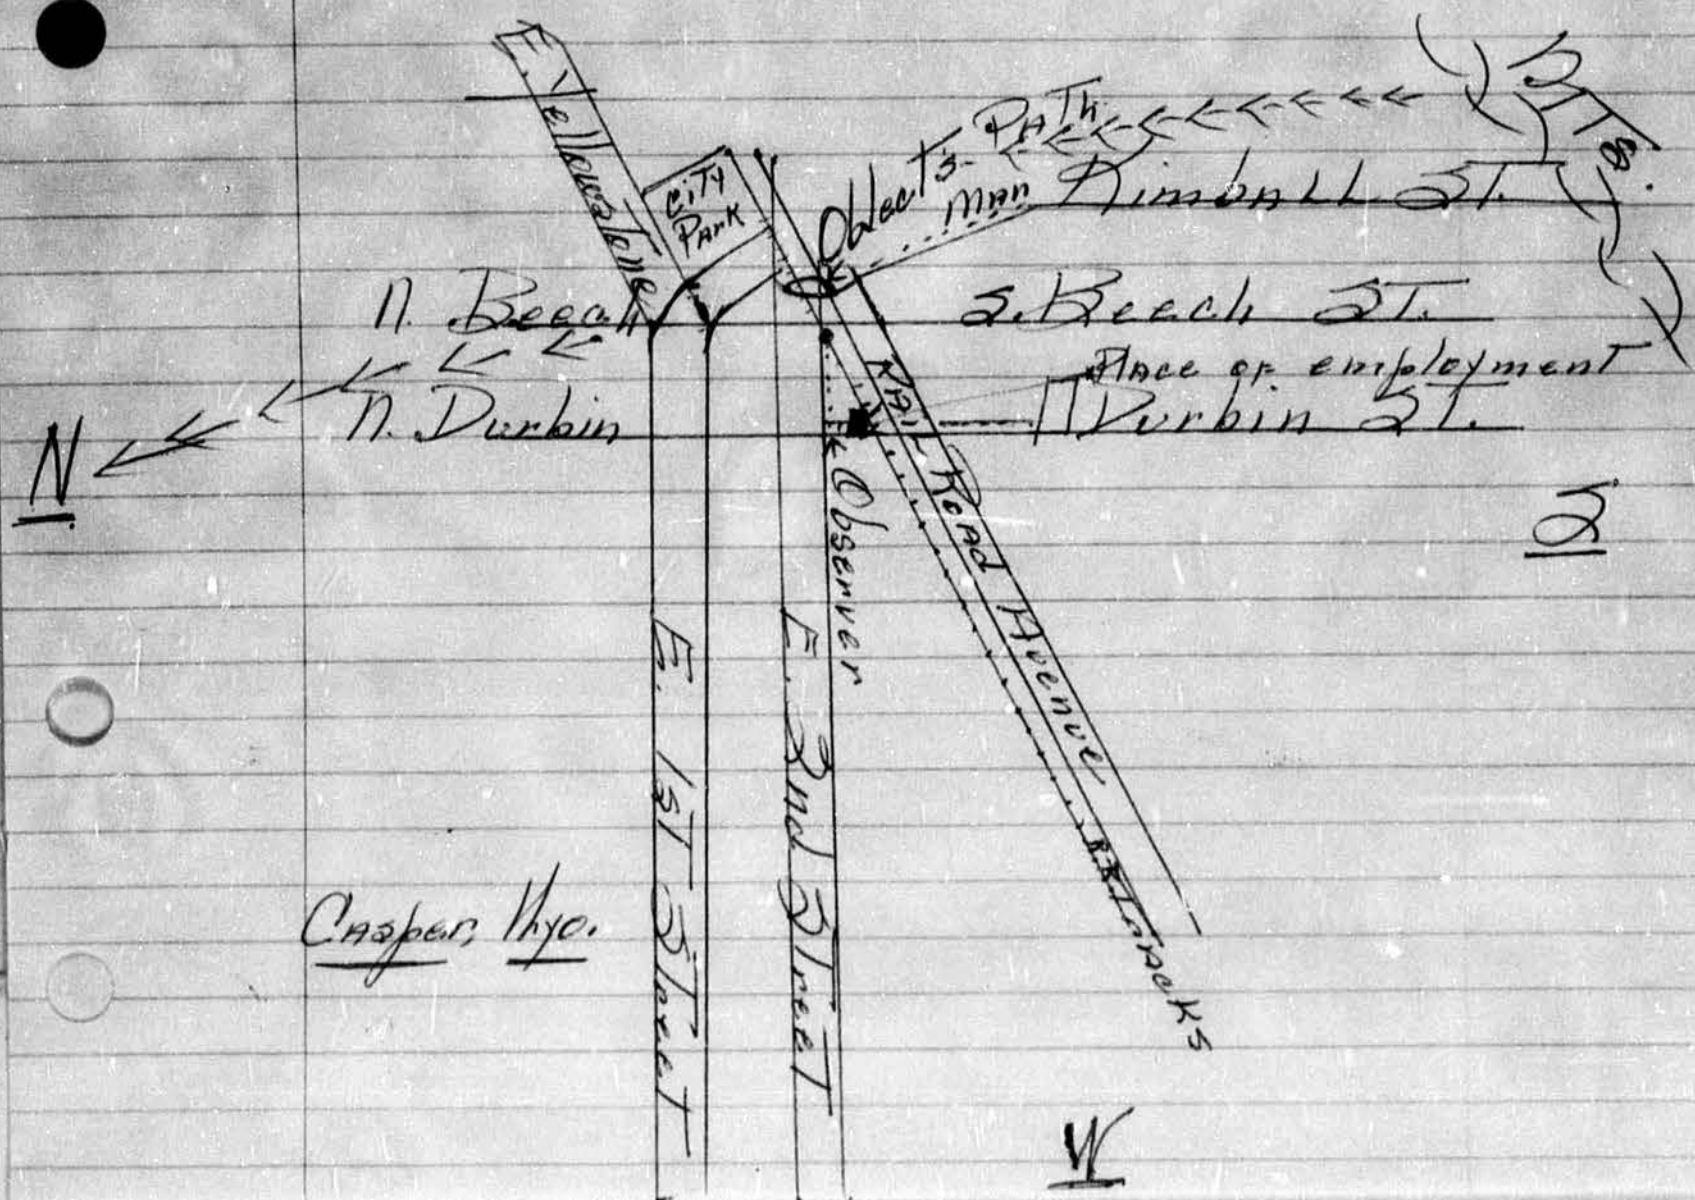 E. Yellowstone
City
Park
Object's Path
Man
Kimball St.
MTS.
N. Beech
S. Beech St.
Place of employment
N. Durbin
Durbin St.
N
S
Observer
Rail Road Avenue
E. 1st Street
E. 2nd Street
R.R. Tracks
Casper, Wyo.
W